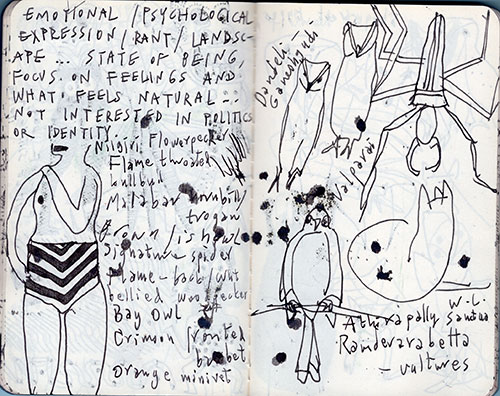 EMOTIONAL / PSYCHOLOGICAL
EXPRESSION / RANT / LANDSC-
APE ... STATE OF BEING,
FOCUS ON FEELINGS AND
WHAT FEELS NATURAL ...
NOT INTERESTED IN POLITICS
OR IDENTITY...
Nilgiri Flowerpecker
Flame throated
bulbul
Malabar hornbill/
trogan
Brown / owl
Signature spider
Flame-back/
bellied woodpecker
Bay Owl
Crimson fronted
barbet
Orange minivet
Dandeli
Ganeshgudi
Valparai
W.L.
Athirapally
Ramdevarabetta
- vultures